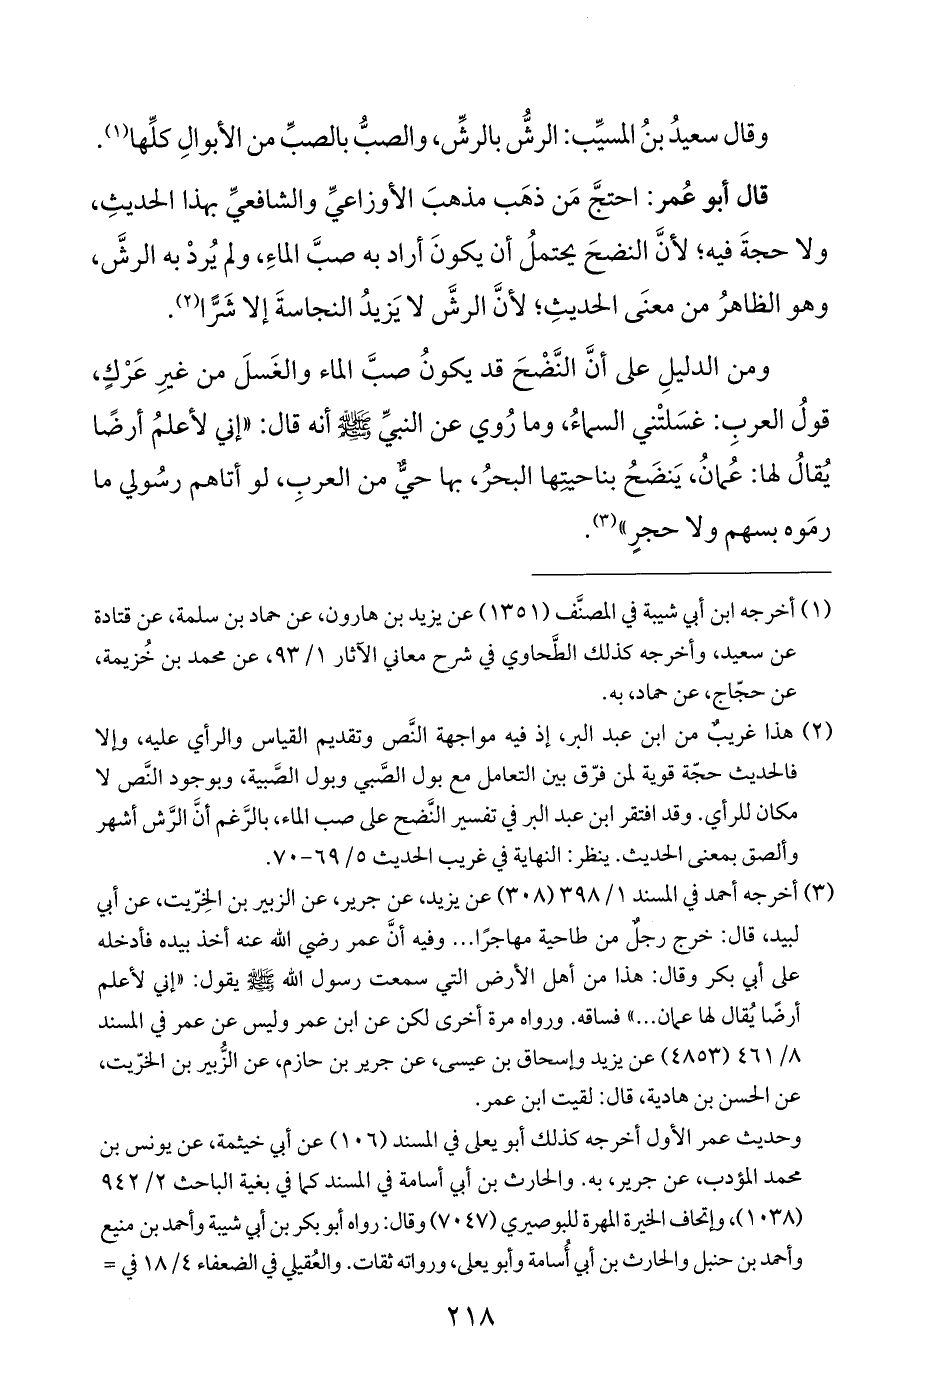 وقال سعيدُ بنُ المسيِّب: الرشُّ بالرشِّ، والصبُّ بالصبِّ من الأبوالِ كلِّها(١).
قال أبو عُمر: احتجَّ مَن ذهَب مذهبَ الأوزاعيِّ والشافعيِّ بهذا الحديثِ،
ولا حجةَ فيه؛ لأنَّ النضحَ يحتملُ أن يكونَ أراد به صبَّ الماءِ، ولم يُردْ به الرشَّ،
وهو الظاهرُ من معنَى الحديثِ؛ لأنَّ الرشَّ لا يَزيدُ النجاسةَ إلا شَرًّا(٢).
ومن الدليلِ على أنَّ النَّضْحَ قد يكونُ صبَّ الماء والغَسلَ من غيرِ عَرْكٍ،
قولُ العربِ: غسَلتْني السماءُ، وما رُوي عن النبيِّ ﷺ أنه قال: «إني لأعلمُ أرضًا
يُقالُ لها: عُمانُ، يَنضَحُ بناحيتِها البحرُ، بها حيٌّ من العربِ، لو أتاهم رسُولي ما
رمَوه بسهمٍ ولا حجرٍ»(٣).
(١) أخرجه ابن أبي شيبة في المصنَّف (١٣٥١) عن يزيد بن هارون، عن حماد بن سلمة، عن قتادة
عن سعيد، وأخرجه كذلك الطَّحاوي في شرح معاني الآثار ١/ ٩٣، عن محمد بن خُزيمة،
عن حجّاج، عن حماد، به.
(٢) هذا غريبٌ من ابن عبد البر، إذ فيه مواجهة النَّص وتقديم القياس والرأي عليه، وإلا
فالحديث حجّة قوية لمن فرّق بين التعامل مع بول الصَّبي وبول الصَّبية، وبوجود النَّص لا
مكان للرأي. وقد افتقر ابن عبد البر في تفسير النَّضح على صب الماء، بالرَّغم أنَّ الرَّش أشهر
وألصق بمعنى الحديث. ينظر: النهاية في غريب الحديث ٥/ ٦٩-٧٠.
(٣) أخرجه أحمد في المسند ١/ ٣٩٨ (٣٠٨) عن يزيد، عن جرير، عن الزبير بن الخِرّيت، عن أبي
لبيد، قال: خرج رجلٌ من طاحية مهاجرًا... وفيه أنَّ عمر رضي الله عنه أخذ بيده فأدخله
على أبي بكر وقال: هذا من أهل الأرض التي سمعت رسول الله ﷺ يقول: «إني لأعلم
أرضًا يُقال لها عمان...» فساقه. ورواه مرة أخرى لكن عن ابن عمر وليس عن عمر في المسند
٨/ ٤٦١ (٤٨٥٣) عن يزيد وإسحاق بن عيسى، عن جرير بن حازم، عن الزُّبير بن الخرّيت،
عن الحسن بن هادية، قال: لقيت ابن عمر.
وحديث عمر الأول أخرجه كذلك أبو يعلى في المسند (١٠٦) عن أبي خيثمة، عن يونس بن
محمد المؤدب، عن جرير، به. والحارث بن أبي أسامة في المسند كما في بغية الباحث ٢/ ٩٤٢
(١٠٣٨)، وإتحاف الخيرة المهرة للبوصيري (٧٠٤٧) وقال: رواه أبو بكر بن أبي شيبة وأحمد بن منيع
وأحمد بن حنبل والحارث بن أبي أُسامة وأبو يعلى، ورواته ثقات. والعُقيلي في الضعفاء ٤/ ١٨ في =
٢١٨